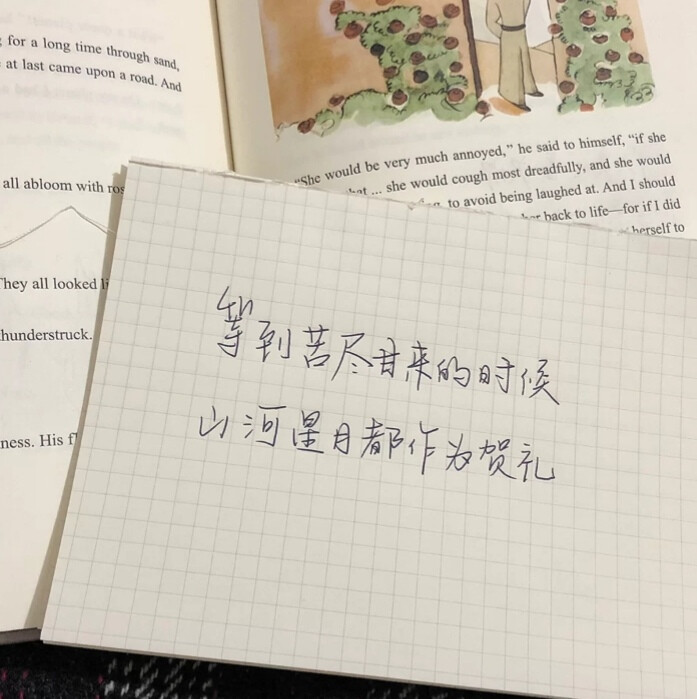 for a long time through sand,
at last came upon a road. And
all abloom with ros
They all looked li
hunderstruck.
ness. His f
"She would be very much annoyed," he said to himself, "if she
... she would cough most dreadfully, and she would
to avoid being laughed at. And I should
back to life—for if I did
herself to
等到苦尽甘来的时候
山河星月都作为贺礼